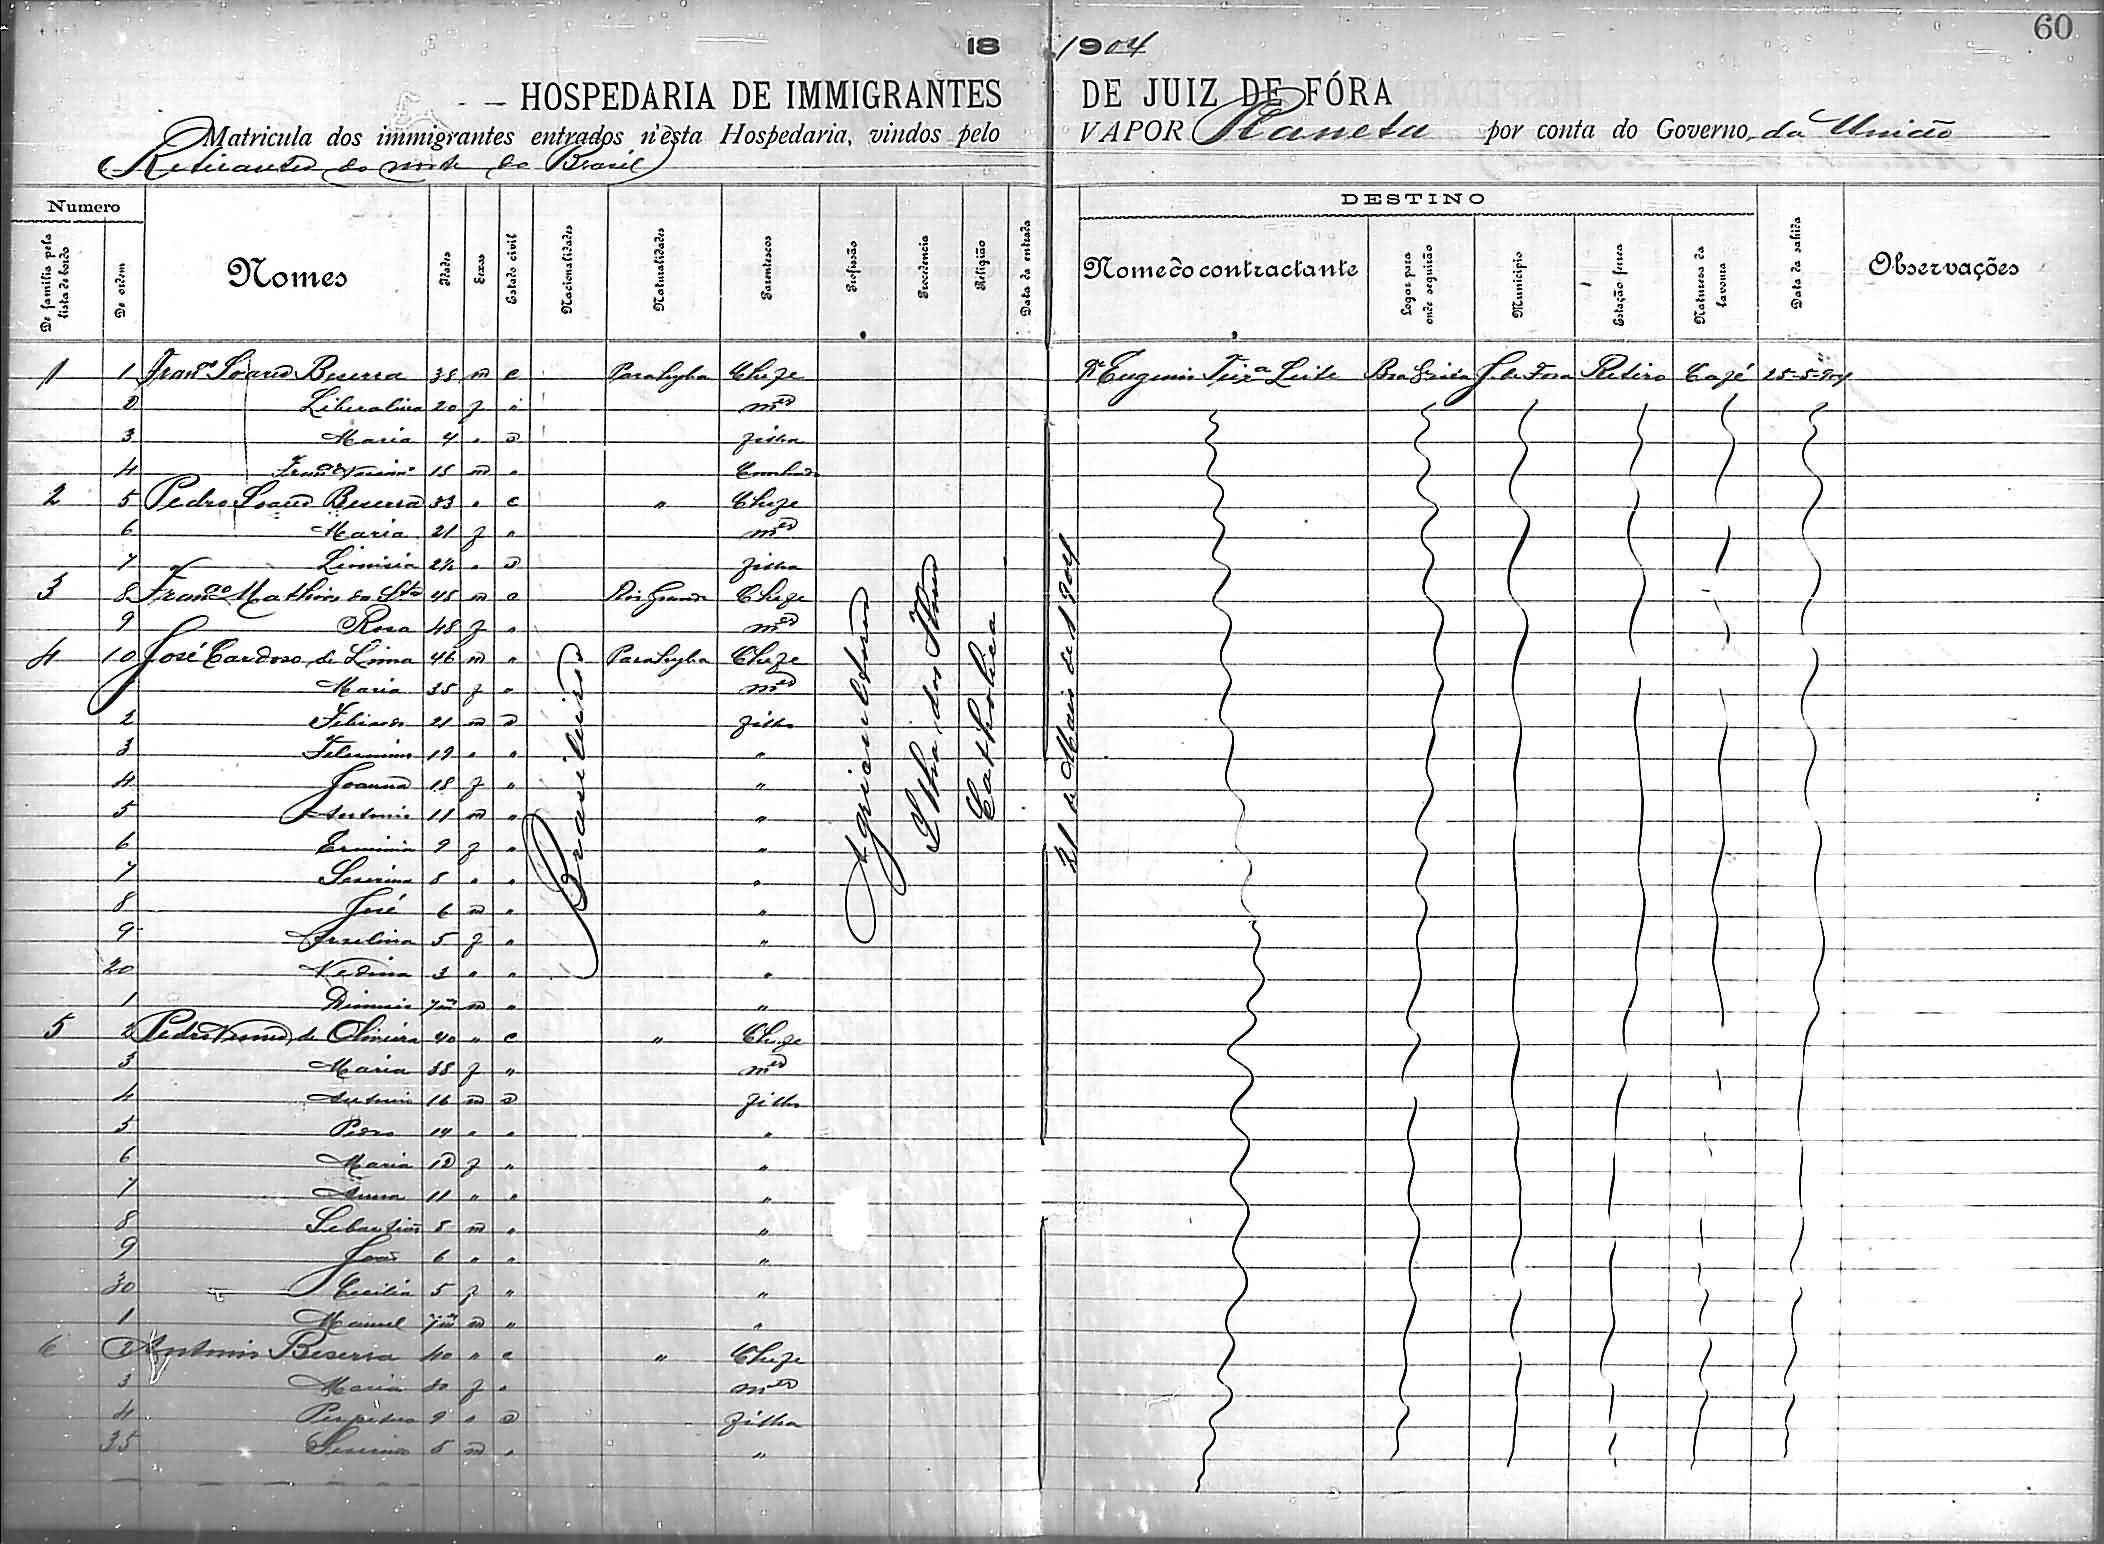 60
18 1904
HOSPEDARIA DE IMMIGRANTES DE JUIZ DE FÓRA
Matricula dos immigrantes entrados n'esta Hospedaria, vindos pelo VAPOR Planeta por conta do Governo, da União
(Retirantes do norte do Brasil)
Numero DESTINO
De familia pela lista de bordo De ordem Nomes Idades Sexos Estado civil Nacionalidades Naturalidades Parentescos Profissão Procedencia Religião Data da entrada Nome do contractante Logar para onde seguirão Municipio Estação ferrea Natureza da lavoura Data da sahida Observações
1 1 Franco Soares Beserra 38 m c Parahyba Chefe Dr Eugenio Teixa Leite J. de Fora Retiro Café 25-5-904
2 Liberalina 20 f " mer
3 Maria 4 " s filha
4 15 m "
2 5 Pedro Soares Beserra 33 " c " Chefe
6 Maria 21 f " mer
7 " s filha
3 8 Franco Mathias dos Stos 48 m c Rio Grande Chefe
9 Rosa 48 f " mer
4 10 José Cardoso de Lima 46 m " Parahyba Chefe
1 Maria 35 f " mer
2 21 m s filho
3 19 " " "
4 Joanna 18 f " "
5 Antonio 11 m " "
6 Erminia 9 f " "
7 Severina 8 " " "
8 José 6 m " "
9 5 f " "
20 3 " " "
1 Dionisio 7m m " "
5 2 Pedro Nunes de Oliveira 40 " c " Chefe
3 Maria 38 f " mer
4 Antonio 16 m s filho
5 Pedro 14 " " "
6 Maria 12 f " "
7 Anna 11 " " "
8 Sebastião 8 m " "
9 João 6 " " "
30 Cecilia 5 f " "
1 Manoel 7m m " "
6 2 Antonio Beserra 40 " c " Chefe
3 Maria 30 f " mer
4 Perpetua 9 " s filha
35 Severino 8 m " "
Brasileiros
Agricultores
Ilha das Flores
Catholica
21 de Maio de 1904